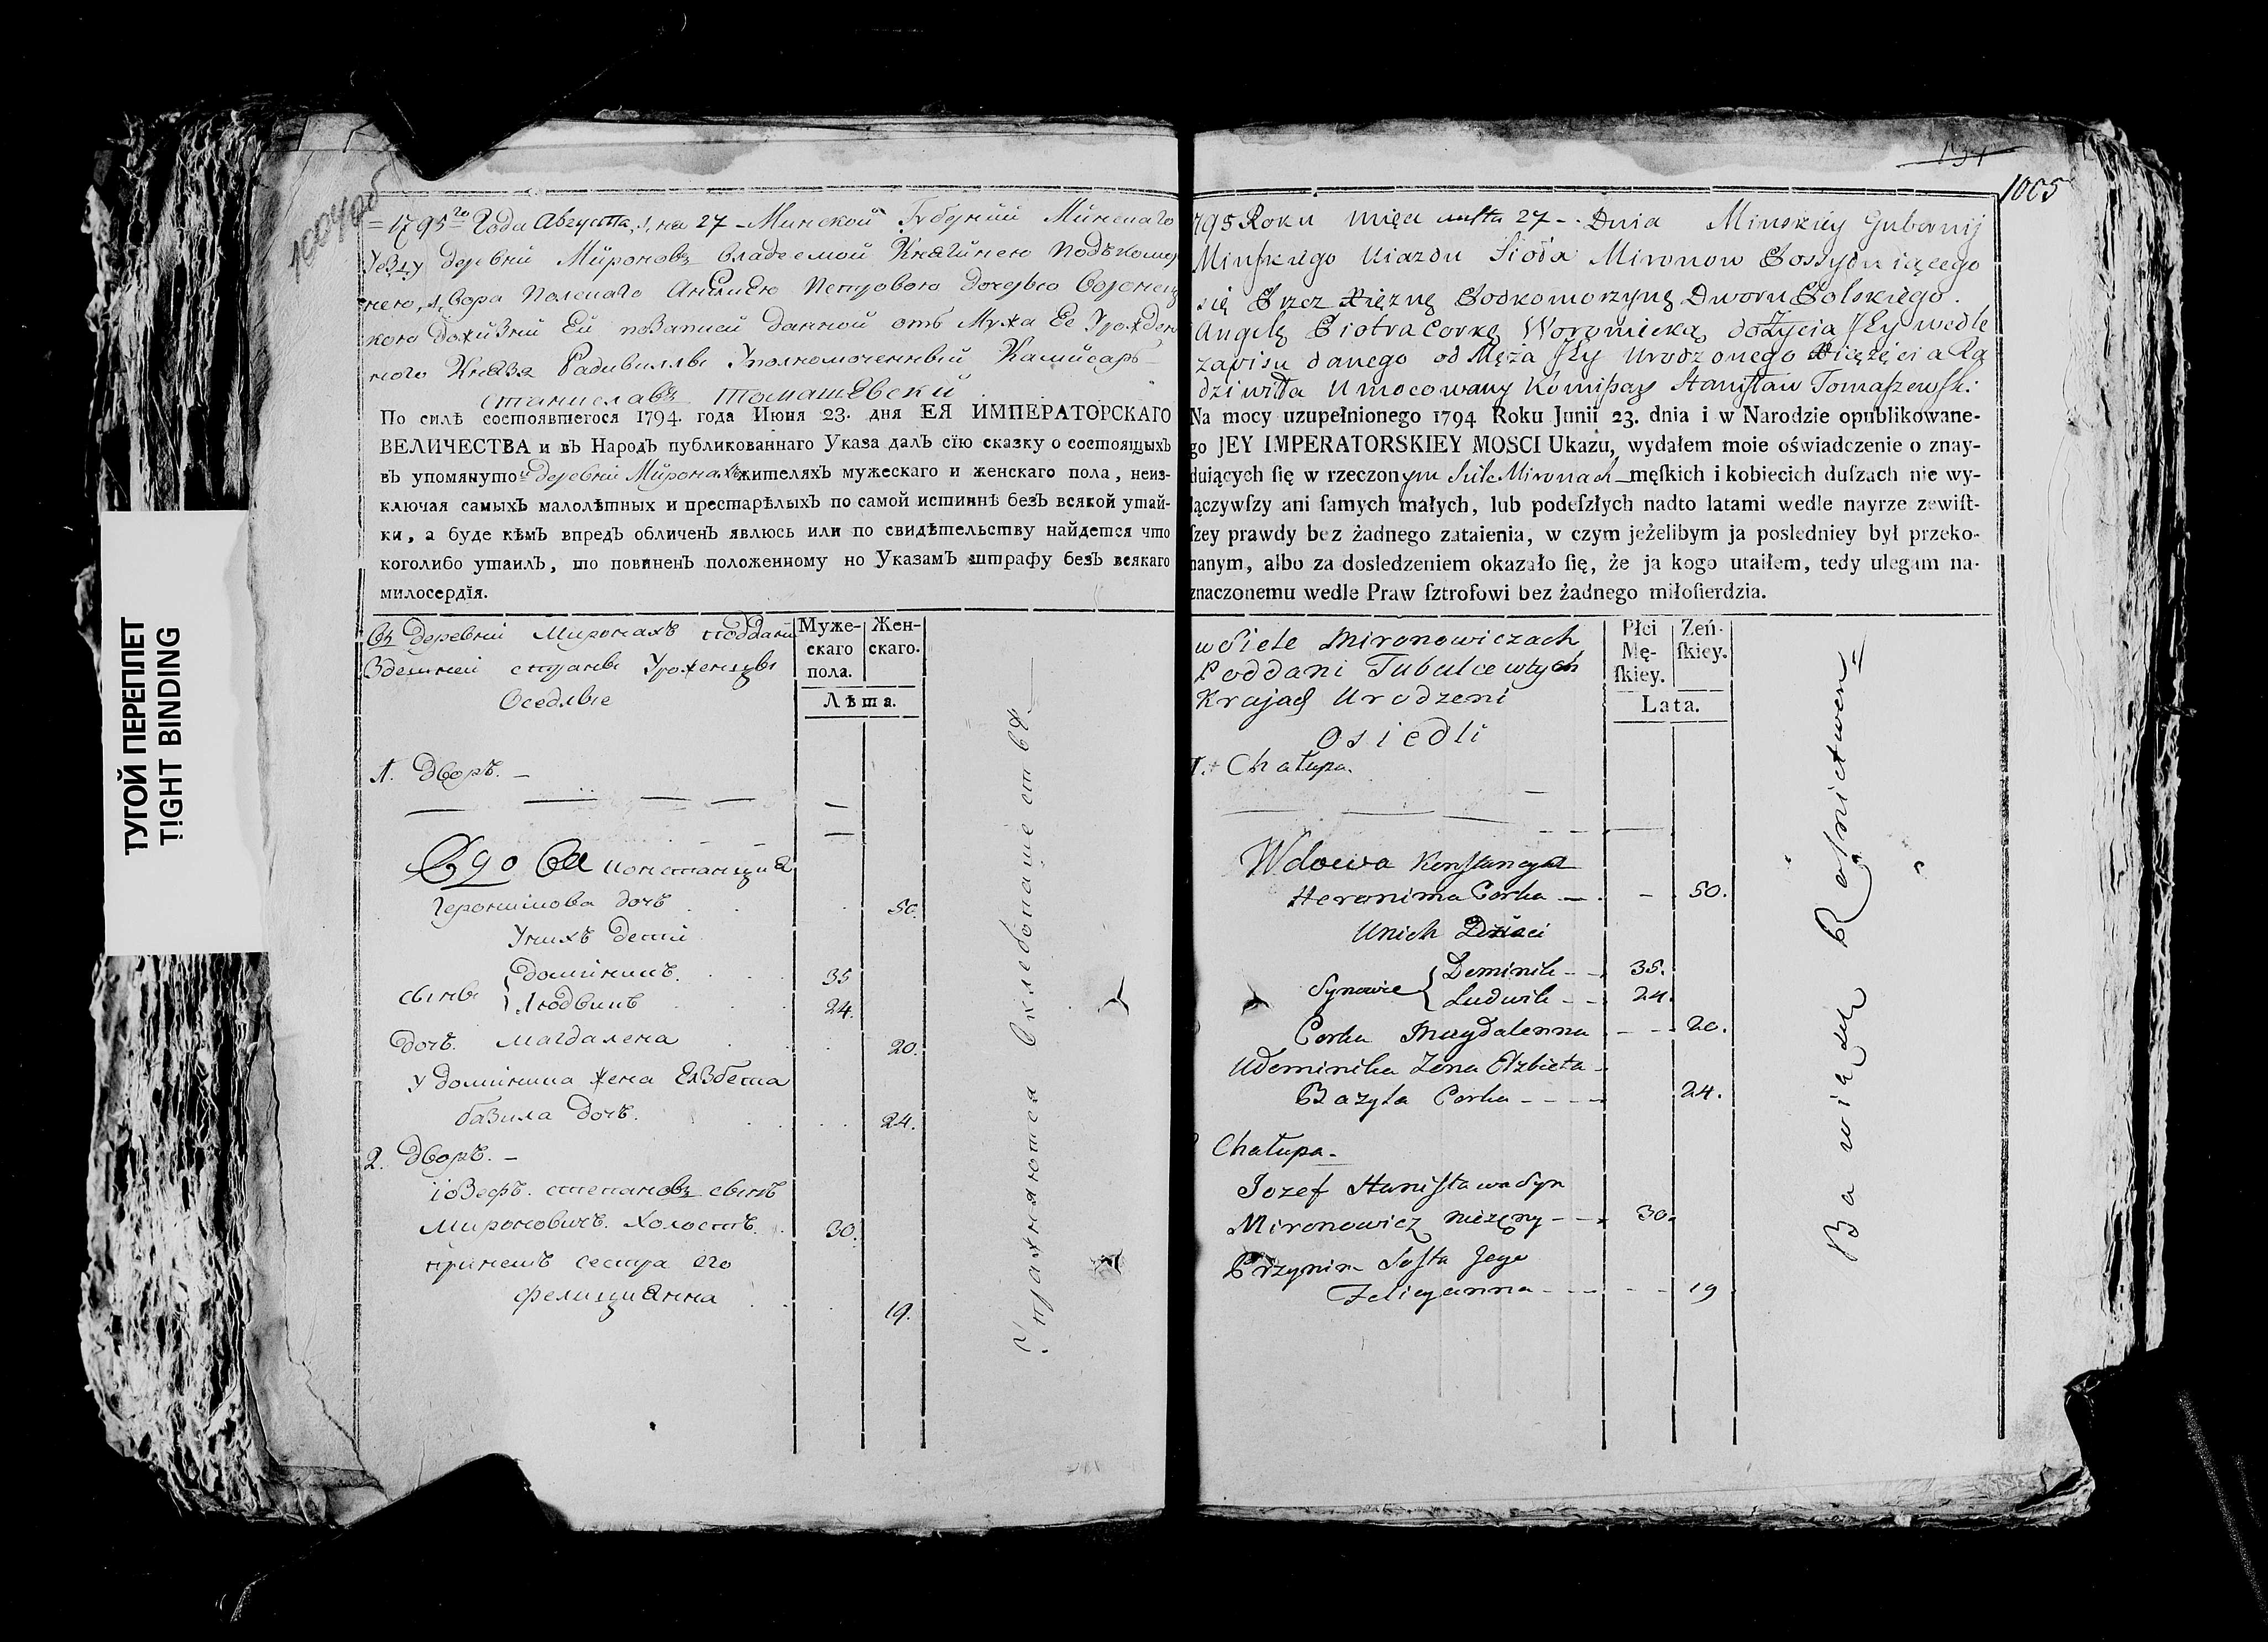 ТУГОЙ ПЕРЕПЛЕТ
TIGHT BINDING
1004об
= 1795го Года Августа, 27 - Минской Губернии Минскаго
Уезду деревни Миронов владеемой Княгинею Подкомор
нею, Двора Полскаго Петровою дочерью
Ей данной отъ Мужа Ее Урожден
ного Князя Радивиллы Уполномоченный Камисаръ
станиславъ томашевски
По силѣ состоявшегося 1794. года Июня 23. дня ЕЯ ИМПЕРАТОРСКАГО
ВЕЛИЧЕСТВА и въ Народъ публикованнаго Указа далъ сїю сказку о состоящихъ
въ упомянутой деревни Миронахъ жителяхъ мужескаго и женскаго пола, неиз-
ключая самыхъ малолѣтныхъ и престарѣлыхъ по самой истиннѣ безъ всякой утай-
ки, а буде кѣмъ впредъ обличенъ явлюсь или по свидѣтельству найдется что
коголибо утаилъ, то повиненъ положенному по Указамъ штрафу безъ всякаго
милосердїя.
Въ деревни Миронахъ подданы
Здешней страны Уроженцы
Оседлые
Муже-
скаго
пола.
Жен-
скаго.
Лѣта.
1. Дворъ. —
Вдова констанциа
Геронимова дочь 50.
У нихъ дети
сыны Доминикъ 35
Людвикъ 24.
Дочь. Магдалена 20.
У доминика жена Елзбета
базила дочь. 24.
2. Дворъ. —
iозефъ. степановъ сынъ
Мироновичъ. холостъ. 30.
при немъ сестра его
фелициянна 19.
Упражняются в хлебопашестве
1005
795 Roku 27 - Dnia Minskiey Gubernij
Minskiego Uiazdu Sioła Mironow Possyduiącego
się Przez Xiężnę Podkomorzynę Dworu Polskiego.
Angelę Piotra Corkę Woroniecką do Życia Jey wedle
zapisu danego od Męża Jey Urodzonego Xiężęcia Ra
dziwiłła Umocowany Komisarz Stanisław Tomaszewski:
Na mocy uzupełnionego 1794 Roku Junii 23. dnia i w Narodzie opublikowane-
go JEY IMPERATORSKIEY MOSCI Ukazu, wydałem moie oświadczenie o znay-
duiących ſię w rzeczonym Siele Mironach męſkich i kobiecich duſzach nie wy-
łączywſzy ani ſamych małych, lub podeſzłych nadto latami wedle nayrze zewiſt-
ſzey prawdy bez żadnego zataienia, w czym jeżelibym ja posledniey był przeko-
nanym, albo za dosledzeniem okazało ſię, że ja kogo utaiłem, tedy ulegam na-
znaczonemu wedle Praw ſztrofowi bez żadnego miłoſierdzia.
w Siele Mironowiczach
Poddani Tubulce w tych
Krajach Urodzeni
Osiedli
Płci
Mę-
ſkiey.
Zeń-
ſkiey.
Lata.
1. Chałupa.
Wdowa Konstancya
Heronima Corka — 50.
U nich Dzieci
Synowie Dominik 35.
Ludwik 24.
Corka Magdalenna 20.
U dominika Zona Elzbieta
Bazyla Corka 24.
Chałupa.
Jozef Stanisława Syn
Mironowicz nieżęny 30.
Przynim Sostra Jego
Felicyanna 19
Bawią się Rolnictwem